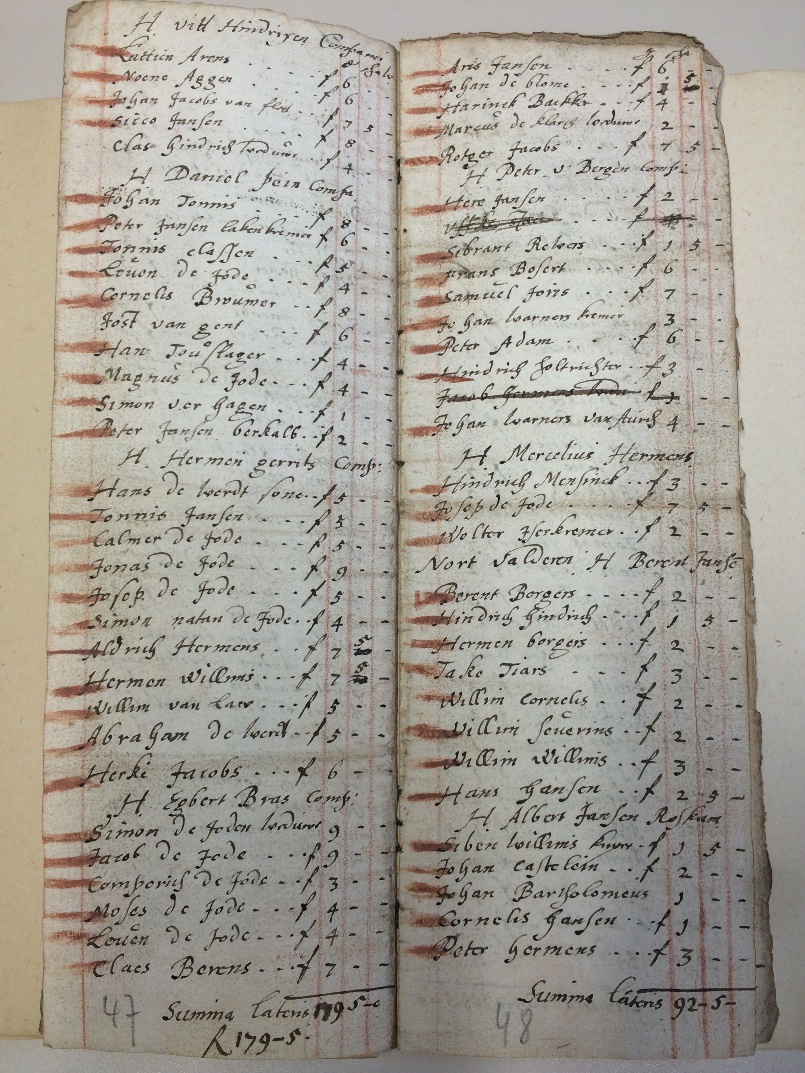 H vitl Hindrixen Companei
Luttien Arens f 6 - -
Noene Aggen f 6 - -
Johan Jacobs van f 7 5 -
Sicco Jansen f 8 - -
Clas Hindrich weduwe f 4 - -
H Daniel Compa
Johan Tonnis f 8 - -
Peter Jansen lakenkremer f 6 - -
Tonnis classen f 5 - -
Leuon de Jode f 4 - -
Cornelis Brouwer f 8 - -
Jost van gent f 6 - -
Han Touslager f 4 - -
Magnus de Jode f 4 - -
Simon ver hagen f 1 - -
Peter Jansen berkalb f 2 - -
H Hermen gerrits Comp:
Hans de werdt sone f 5 - -
Tonnis Jansen f 3 - -
Calmer de Jode f 5 - -
Jonas de Jode f 9 - -
Josep de Jode f 5 - -
Simon natan de Jode f 4 - -
Aldrich Hermens f 7 5 -
Hermen Willims f 7 5 -
Willim van Laer f 5 - -
Abraham de werdt f 5 - -
Herke Jacobs f 6 -
H Egbert Bras Comp:
Simon de Joden weduwe 9 - -
Jacob de Jode f 9 - -
Comperich de Jode f 3 - -
Moses de Jode f 4 - -
Leuen de Jode f 4 - -
Claes Berens f 7 - -
Summa lateris 179 5 - 0
R 179 - 5 -
47
Aris Jansen f 6 - -
Johan de blome f 5 -
Harinck Backker f 4 - -
Marcus de weduwe 2 - -
Rotger Jacobs f 7 5 -
H Peter v Bergen Comp:
Here Jansen f 2 - -
Sibrant f 1 5 -
frans Bosert f 6 - -
Samuel Joris f 7 - -
Johan warners kremer 3 - -
Peter Adam f 6 - -
Hindrich holtrichter f 3 - -
Jacob Hermens f
Johan warners van 4 - -
H Mercelius Hermens
Hindrich Mensinck f 3 - -
Josep de Jode f 7 5 -
Wolter Herkremer f 2 - -
Nort Valderen H Berent Janse
Berent Borgers f 2 - -
Hindrich Hindrich f 1 5 -
Hermen borgers f 2 - -
Take Tiars f 3 - -
Willim Cornelis f 2 - -
Willim Severins f 2 - -
Willim Willims f 3 - -
Hans Hansen f 2 5 -
H Albert Jansen Roskam
Siben Willims f 1 5 -
Johan Castelein f 2 - -
Johan Bartholomeus 1 - -
Cornelis Hansen f 1 - -
Peter Hermens f 3 - -
Summa lateris 92 - 5 -
48